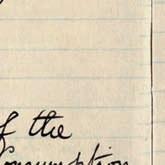 f the
Consumption